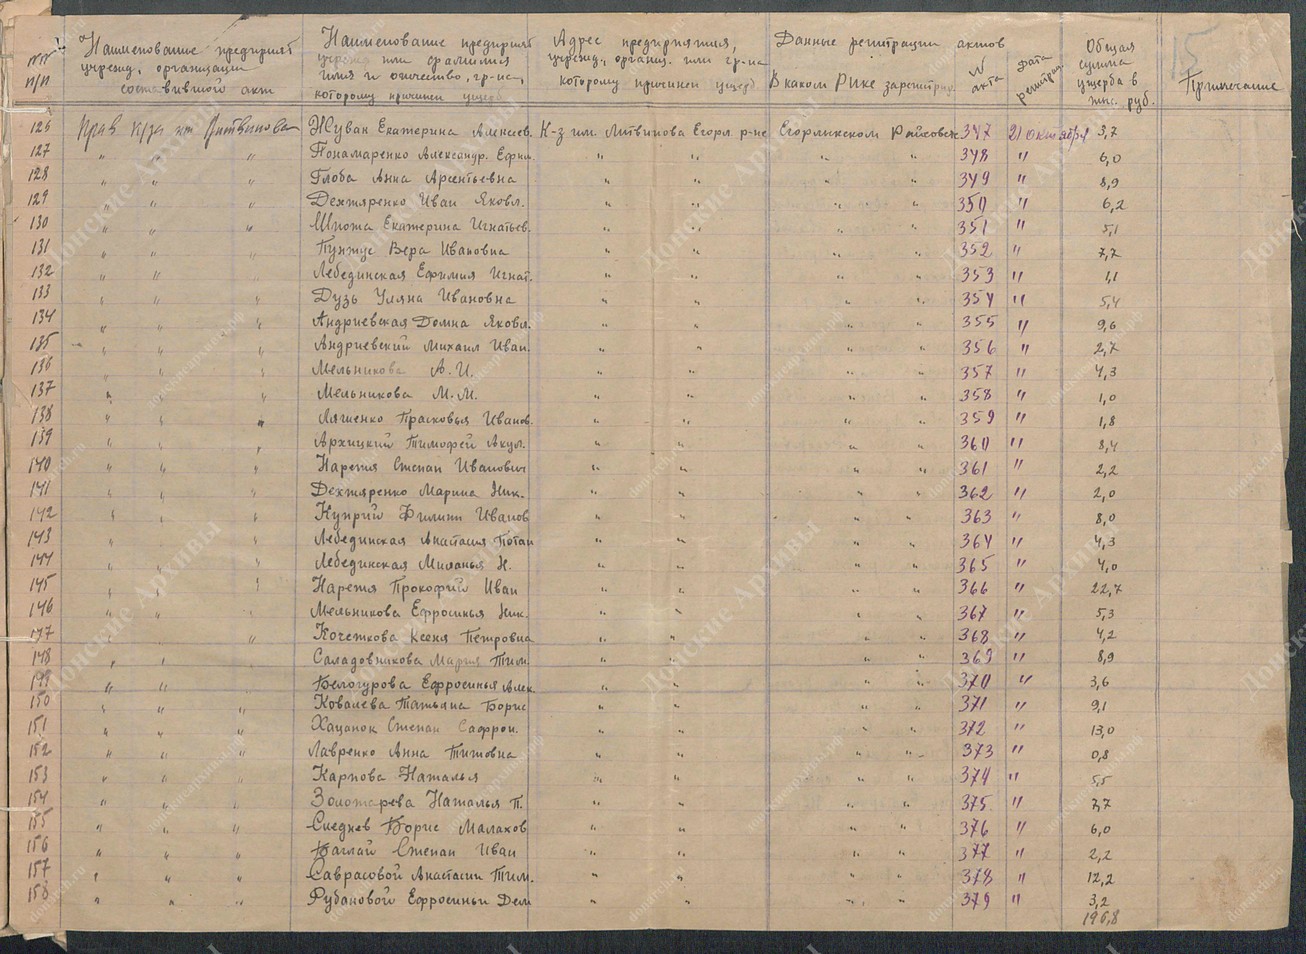 15
№№ п/п
Наименование предприят. учрежд., организации составившего акт
Наименование предприят. учрежд. или фамилия имя и отчество, гр-на, которому причинен ущерб
Адрес предприятия, учрежд., организ. или гр-на которому причинен ущерб
Данные регистрации актов
В каком РИКе зарегистрир.
№ акта
Дата регистрац.
Общая сумма ущерба в тыс. руб.
Примечание
126 Прав к/за им Литвинова Жуван Екатерина Алексеев. К-з им. Литвинова Егорл. р-не Егорлыкском Райсовете 347 21 октября 3,7
127 " " " Пономаренко Александр. Ефим. " " " " 348 " 6,0
128 " " " Глоба Анна Арсентьевна " " " " 349 " 8,9
129 " " " Дехтяренко Иван Яковл. " " " " 350 " 6,2
130 " " " Шпота Екатерина Игнатьев. " " " " 351 " 5,1
131 " " " Пунтус Вера Ивановна " " " " 352 " 7,7
132 " " " Лебединская Ефимия Игнат. " " " " 353 " 1,1
133 " " " Дузь Уляна Ивановна " " " " 354 " 5,4
134 " " " Андриевская Домна Яковл. " " " " 355 " 9,6
135 " " " Андриевский Михаил Иван. " " " " 356 " 2,7
136 " " " Мельникова А.И. " " " " 357 " 4,3
137 " " " Мельникова М.М. " " " " 358 " 1,0
138 " " " Ляшенко Прасковья Иванов. " " " " 359 " 1,8
139 " " " Архицкий Тимофей Акул. " " " " 360 " 8,4
140 " " " Нарежя Степан Иванович " " " " 361 " 2,2
141 " " " Дехтяренко Марина Ник. " " " " 362 " 2,0
142 " " " Куприй Филипп Иванов " " " " 363 " 8,0
143 " " " Лебединская Анастасия Потап " " " " 364 " 4,3
144 " " " Лебединская Миланья Н. " " " " 365 " 4,0
145 " " " Нарежя Прокофий Иван " " " " 366 " 22,7
146 " " " Мельникова Ефросинья Ник. " " " " 367 " 5,3
147 " " " Кочеткова Ксеня Петровна " " " " 368 " 4,2
148 " " " Саладовникова Мария Тим. " " " " 369 " 8,9
149 " " " Белогурова Ефросинья Алек. " " " " 370 " 3,6
150 " " " Ковалева Татьяна Борис " " " " 371 " 9,1
151 " " " Хацанок Степан Сафрон. " " " " 372 " 13,0
152 " " " Лавренко Анна Титовна " " " " 373 " 0,8
153 " " " Карпова Наталья " " " " 374 " 5,5
154 " " " Золотарева Наталья П. " " " " 375 " 7,7
155 " " " Сиеднев Борис Малахов " " " " 376 " 6,0
156 " " " Баглай Степан Иван " " " " 377 " 2,2
157 " " " Саврасовой Анастасии Тим. " " " " 378 " 12,2
158 " " " Рубановой Ефросиньи Дем " " " " 379 " 3,2
196,8